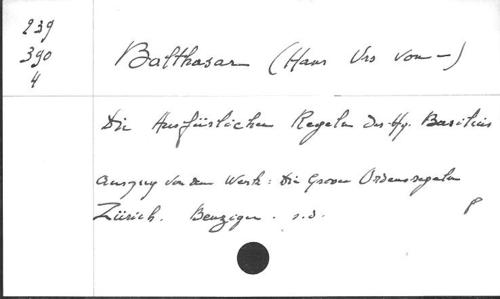 239
390
4
Balthasar (Hans Urs von —)
Die Ausfürlichen Regeln des hg. Basilius
Auszug von dem Werk: Die Grosen Ordensregeln
Zürich. Benziger. s.d.